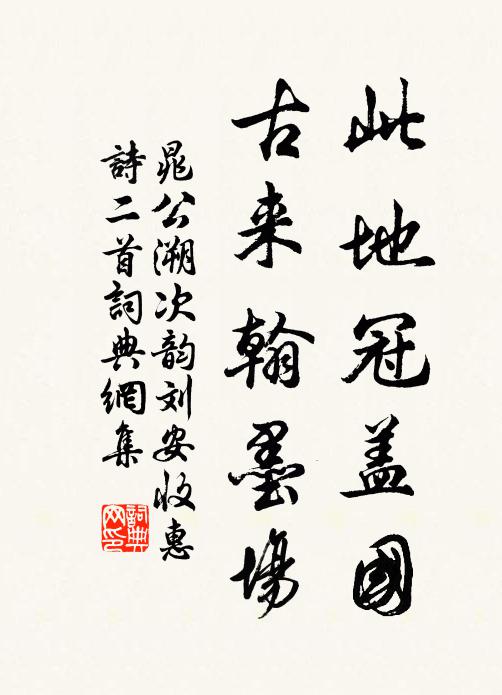 此地冠盖國
古来翰墨場
晁公溯次韵刘安收惠
詩二首詞典網集
詞典網印